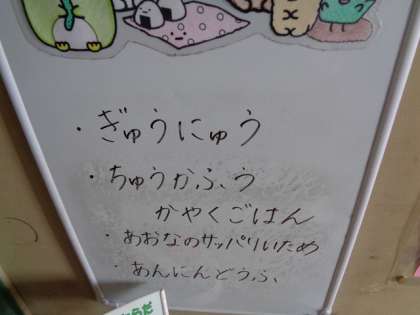 ・ぎゅうにゅう
・ちゅうかふう
かやくごはん
・あおなのサッパリいため
・あんにんどうふ